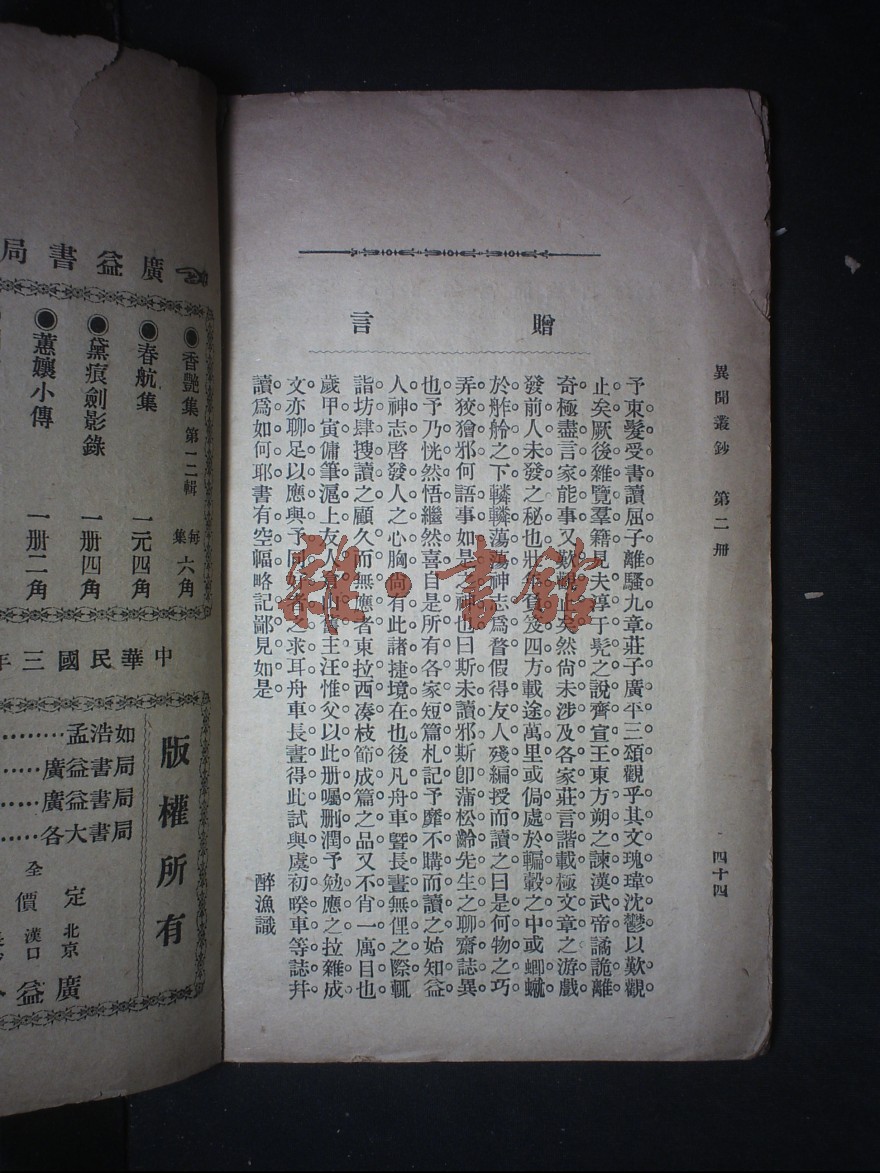 異聞叢鈔　第二册
四十四
贈言
予束髮受書讀屈子離騷九章莊子廣平三頌觀乎其文瑰瑋沈鬱以歎觀
止矣厥後雜覽羣籍見夫淳于髡之說齊宣王東方朔之諫漢武帝譎詭離
奇極盡言家能事又歎觀止矣然尚未涉及各家莊言諧載極文章之游戲
發前人未發之秘也壯年負笈四方載途萬里或侷處於輻轂之中或蜘蹴
於舴舲之下轔轔蕩蕩神志爲瞀假得友人殘編授而讀之曰是何物之巧
弄狡獪邪何語事如是之神也曰斯未讀邪斯卽蒲松齡先生之聊齋誌異
也予乃恍然悟繼然喜自是所有各家短篇札記予靡不購而讀之始知益
人神志啓發人之心胸尚有此諸捷境在也後凡舟車暨長晝無俚之際輒
詣坊肆搜讀之顧久而無應者東拉西凑枝節成篇之品又不肖一寓目也
歲甲寅傭筆滬上友人山舊主汪惟父以此册囑删潤予勉應之拉雜成
文亦聊足以應與予同者之求耳舟車長晝得此試與虞初暌車等誌幷
讀爲如何耶書有空幅略記鄙見如是
醉漁識
廣益書局
◉香艷集　第一二輯　每集六角
◉春航集　一元四角
◉黛痕劍影錄　一册四角
◉蕙孃小傳　一册二角
中華民國三年
版權所有
孟浩如
廣益書局
廣益書局
各大書局
定價
全
北京
漢口
廣益
雜·書館